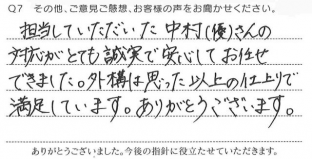 Q7 その他、ご意見ご懸想、お客様の声をお聞かせください。
担当していただいた 中村(優)さんの
対応がとても誠実で安心してお任せ
できました。外構は思った以上の仕上りで
満足しています。ありがとうございます。
ありがとうございました。今後の指針に役立たせていただきます。